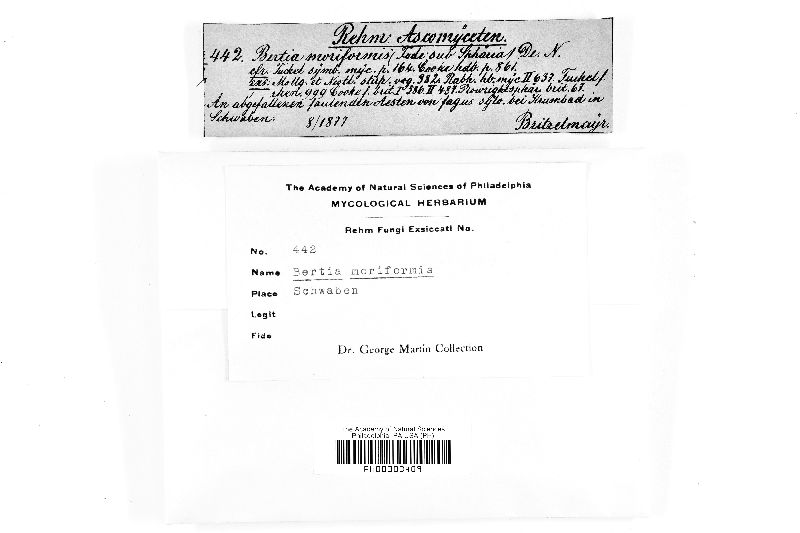 Rehm: Ascomyceten.
442. Bertia moriformis (Tode sub Sphäria) De. N.
cfr. Fuckel symb. myc. p. 164. Cooke hdb. p. 861.
exs: Moug. et Nestl. stirp. vog. 982. Rabh. hb. myc. II 637. Fuckel f.
rhen. 949 Cooke f. brit. I 386. II 487. Plowright sphär. brit. 67.
An abgefallenen faulenden Aesten von fagus sylv. bei Krumbad in
Schwaben. 8/1877 Britzelmayr.
The Academy of Natural Sciences of Philadelphia
MYCOLOGICAL HERBARIUM
Rehm Fungi Exsiccati No.
No. 442
Name Bertia moriformis
Place Schwaben
Legit
Fide
Dr. George Martin Collection
The Academy of Natural Sciences
Philadelphia, PA USA (PH)